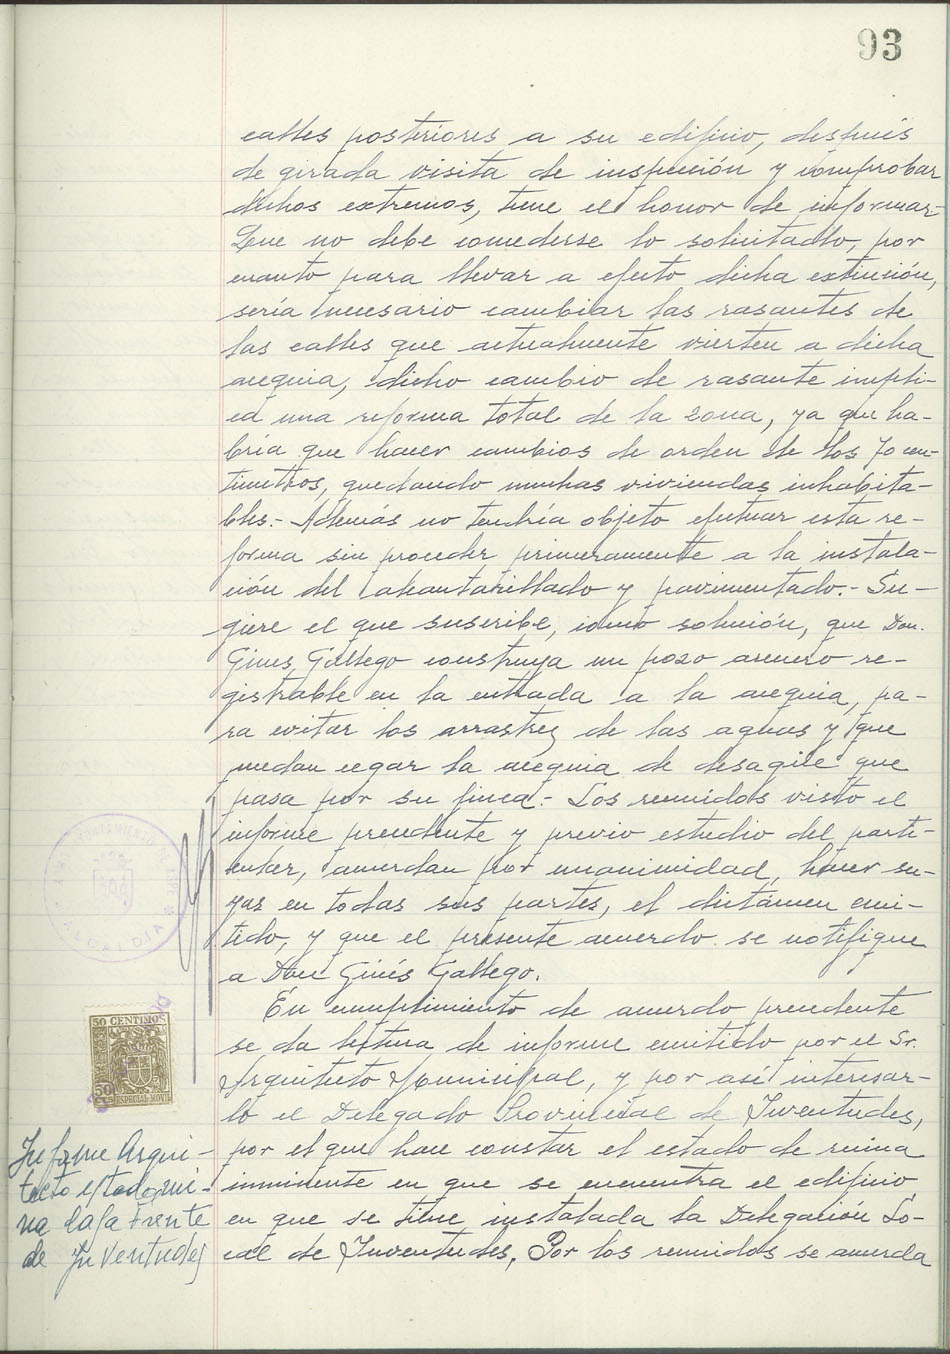 93
calles posteriores a su edificio, después
de girada visita de inspección y comprobar
dichos extremos, tiene el honor de informar:
Que no debe concederse lo solicitado, por
cuanto para llevar a efecto dicha extinción,
sería necesario cambiar las rasantes de
las calles que actualmente vierten a dicha
acequia, dicho cambio de rasante impli-
ca una reforma total de la zona, ya que ha-
bría que hacer cambios de orden de los 70 cen-
tímetros, quedando muchas viviendas inhabita-
bles.- Además no tendría objeto efectuar esta re-
forma sin proceder primeramente a la instala-
ción del alcantarillado y pavimentado.- Su-
giere el que suscribe, como solución, que Don
Ginés Gallego construya un pozo arenero re-
gistrable en la entrada a la acequia, pa-
ra evitar los arrastres de las aguas y que
puedan cegar la acequia de desagüe que
pasa por su finca.- Los reunidos visto el
informe precedente y previo estudio del parti-
cular, acuerdan por unanimidad, hacer su-
yas en todas sus partes, el dictámen emi-
tido, y que el presente acuerdo se notifique
a Don Ginés Gallego.
En cumplimiento de acuerdo precedente
se da lectura de informe emitido por el Sr.
Arquitecto Municipal, y por así interesar-
lo el Delegado Provincial de Juventudes,
por el que hace constar el estado de ruina
inminente en que se encuentra el edificio
en que se tiene instalada la Delegación Lo-
cal de Juventudes. Por los reunidos se acuerda
ALCALDIA
50 CENTIMOS
50
ESPECIAL MOVIL
Informe Arqui-
tecto estado rui-
na casa Frente
de Juventudes